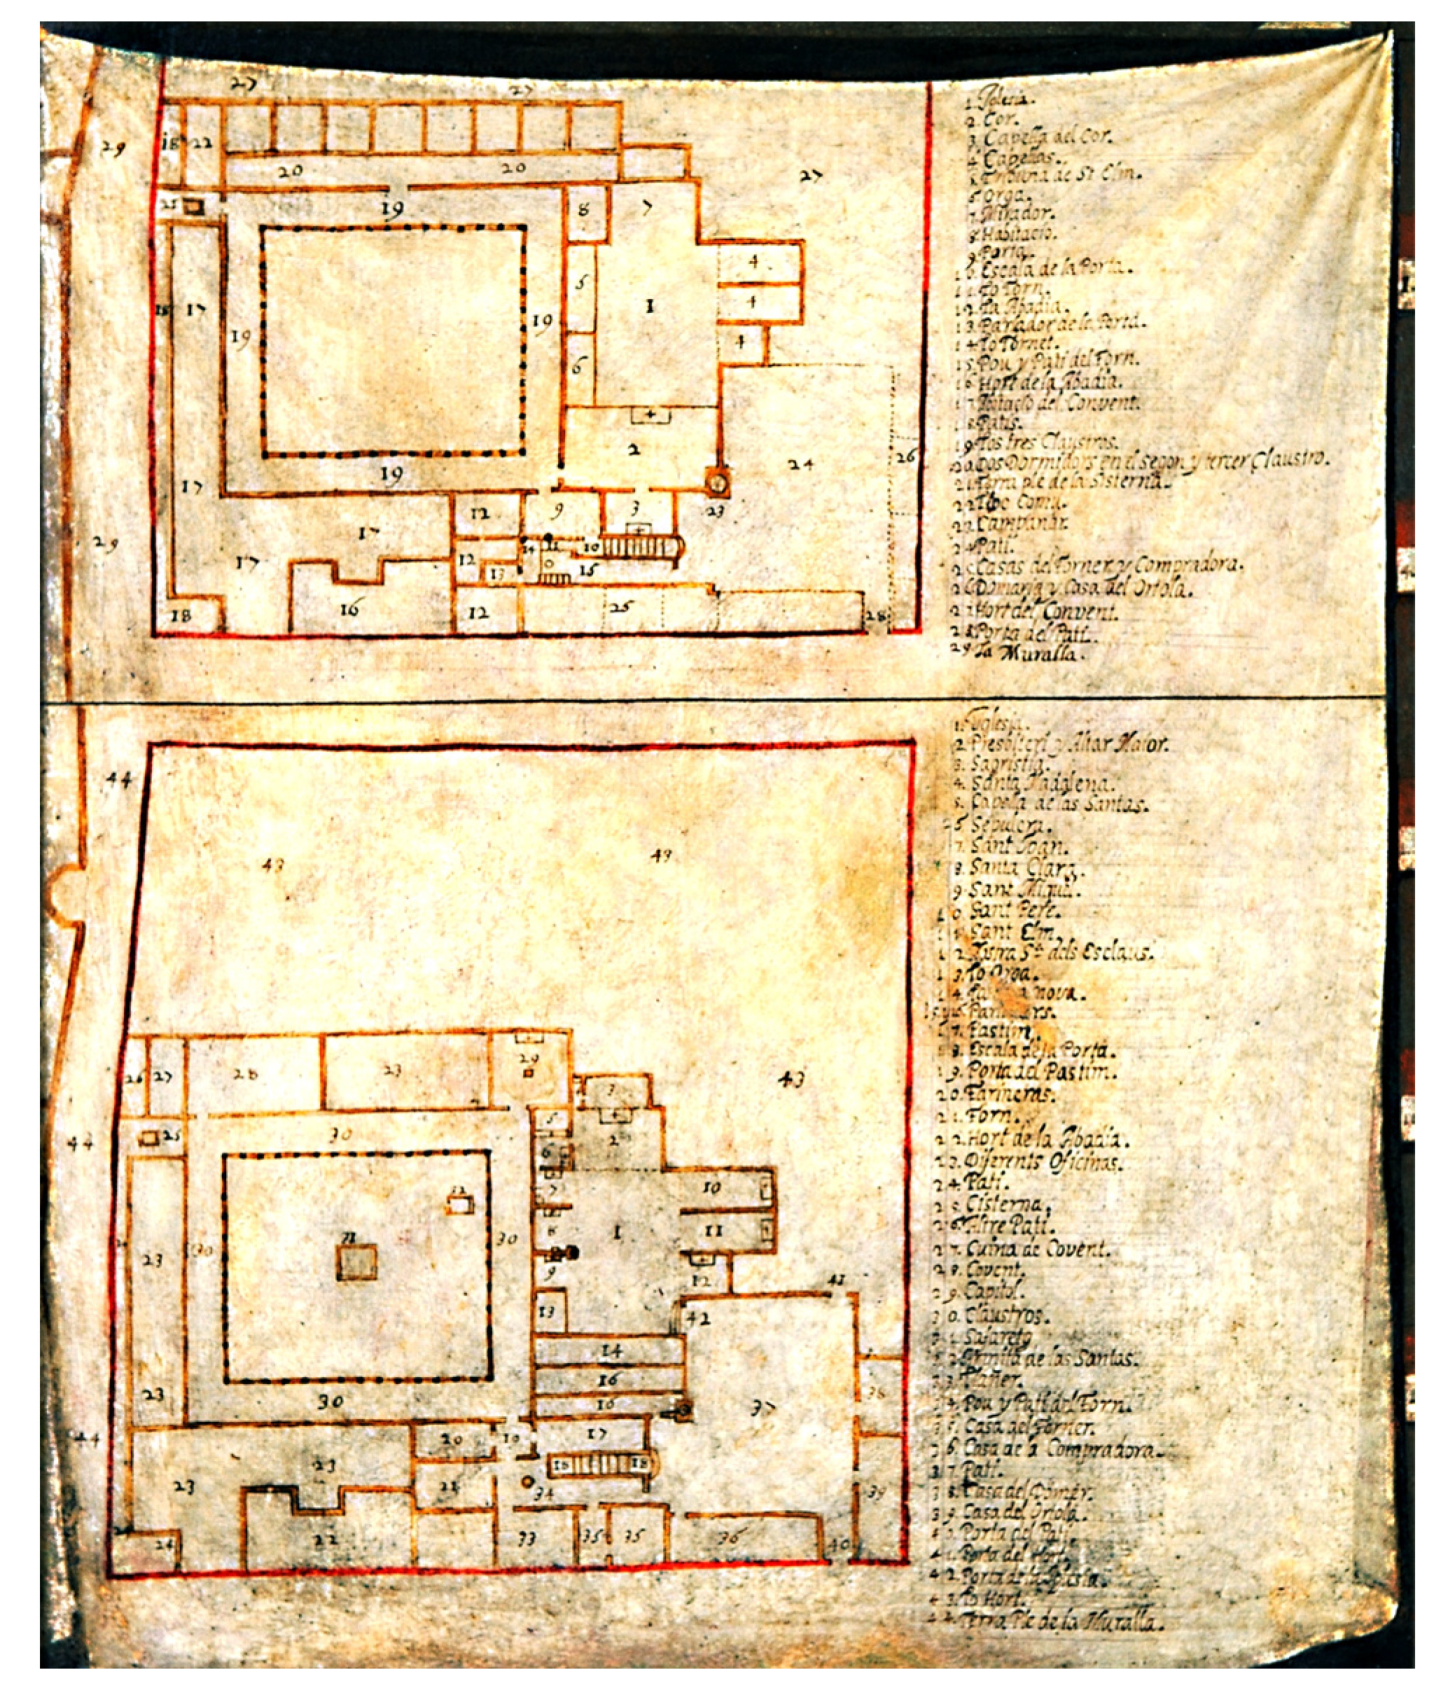 27 27
29 18 22
20 20 27
21 19 8 7
5 4
18 17 19 19 1 4
6 4
2 24 26
17 19
12 9 3 23
17 14 11 10
29 17 12 13 15
18 16 12 25 28
1. Iglesia.
2. Cor.
3. Capella del Cor.
4. Capellas.
5. Tribuna de St. Elm.
6. Orga.
7. Mirador.
8. Habitacio.
9. Porta.
10. Escala de la Porta.
11. Lo Torn.
12. La Abadia.
13. Parlador de la Porta.
14. Lo Tornet.
15. Pou y Pati del Torn.
16. Hort de la Abadia.
17. del Convent.
18. Patis.
19. Los tres Claustros.
20. Los Dormidors en el segon y tercer Claustro.
21. Terra ple de la Sisterna.
22. Comu.
23. Campanar.
24. Pati.
25. Casas del Torner y Compradora.
26. y Casa del Ortola.
27. Hort del Convent.
28. Porta del Pati.
29. La Muralla.
44
43 43
26 27 28 23 29 3 43
44 25 30 5 2
6
32 7 10
23 30 31 30 8 1 11
9 12 41
13 42
14
23 30 16 38
16 37
44 20 19 17
23 23 21 18 18
34 39
24 22 33 35 35 36 40
1. Iglesia.
2. Presbiteri y Altar Maior.
3. Sagristia.
4. Santa Madalena.
5. Capella de las Santas.
6. Sepulcra.
7. Sant Joan.
8. Santa Clara.
9. Sant Miquel.
10. Sant Pere.
11. Sant Elm.
12. Sra. dels Esclaus.
13. Lo Orga.
14. nova.
17. Pastim.
18. Escala de la Porta.
19. Porta del Pastim.
20. Farineras.
21. Forn.
22. Hort de la Abadia.
23. Diferents Oficinas.
24. Pati.
25. Cisterna.
26. Altre Pati.
27. Cuina de Covent.
28. Covent.
29. Capitol.
30. Claustros.
31. Safareig
32. Ermita de las Santas.
33.
34. Pou y Pati del Torn.
35. Casa del Torner.
36. Casa de la Compradora.
37. Pati.
38. Casa del
39. Casa del Ortola.
40. Porta del Pati.
41. Porta del Hort.
42. Porta de la Iglesia.
43. Lo Hort.
44. Terra Ple de la Muralla.